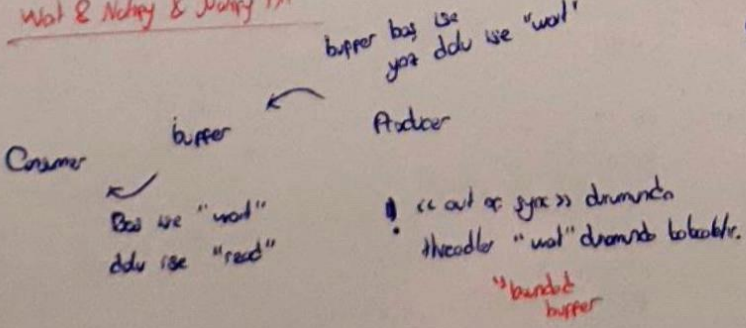 Wait & Notify & Notify
buffer boş ise
yaz dolu ise "wait"
buffer
Producer
Consumer
Boş ise "wait"
dolu ise "read"
! << out of sync >> durumunda
threadler "wait" durumunda kalabilir.
"bounded
buffer